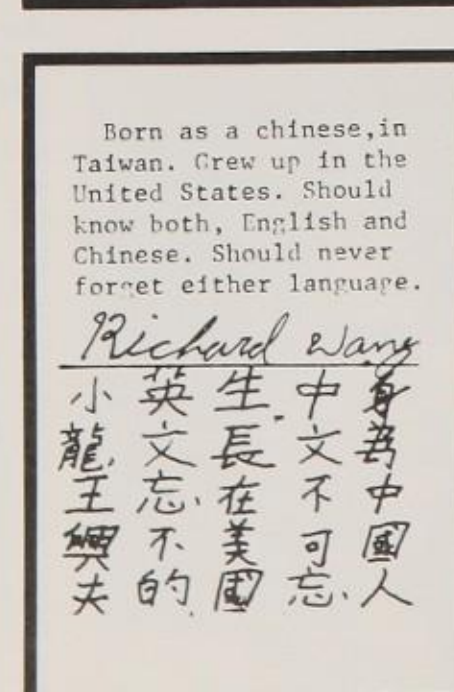 Born as a chinese,in
Taiwan. Grew up in the
United States. Should
know both, English and
Chinese. Should never
forget either language.
Richard Wang
身為中國人
中文不可忘.
生長在美國
英文忘不的.
小龍,王興夫